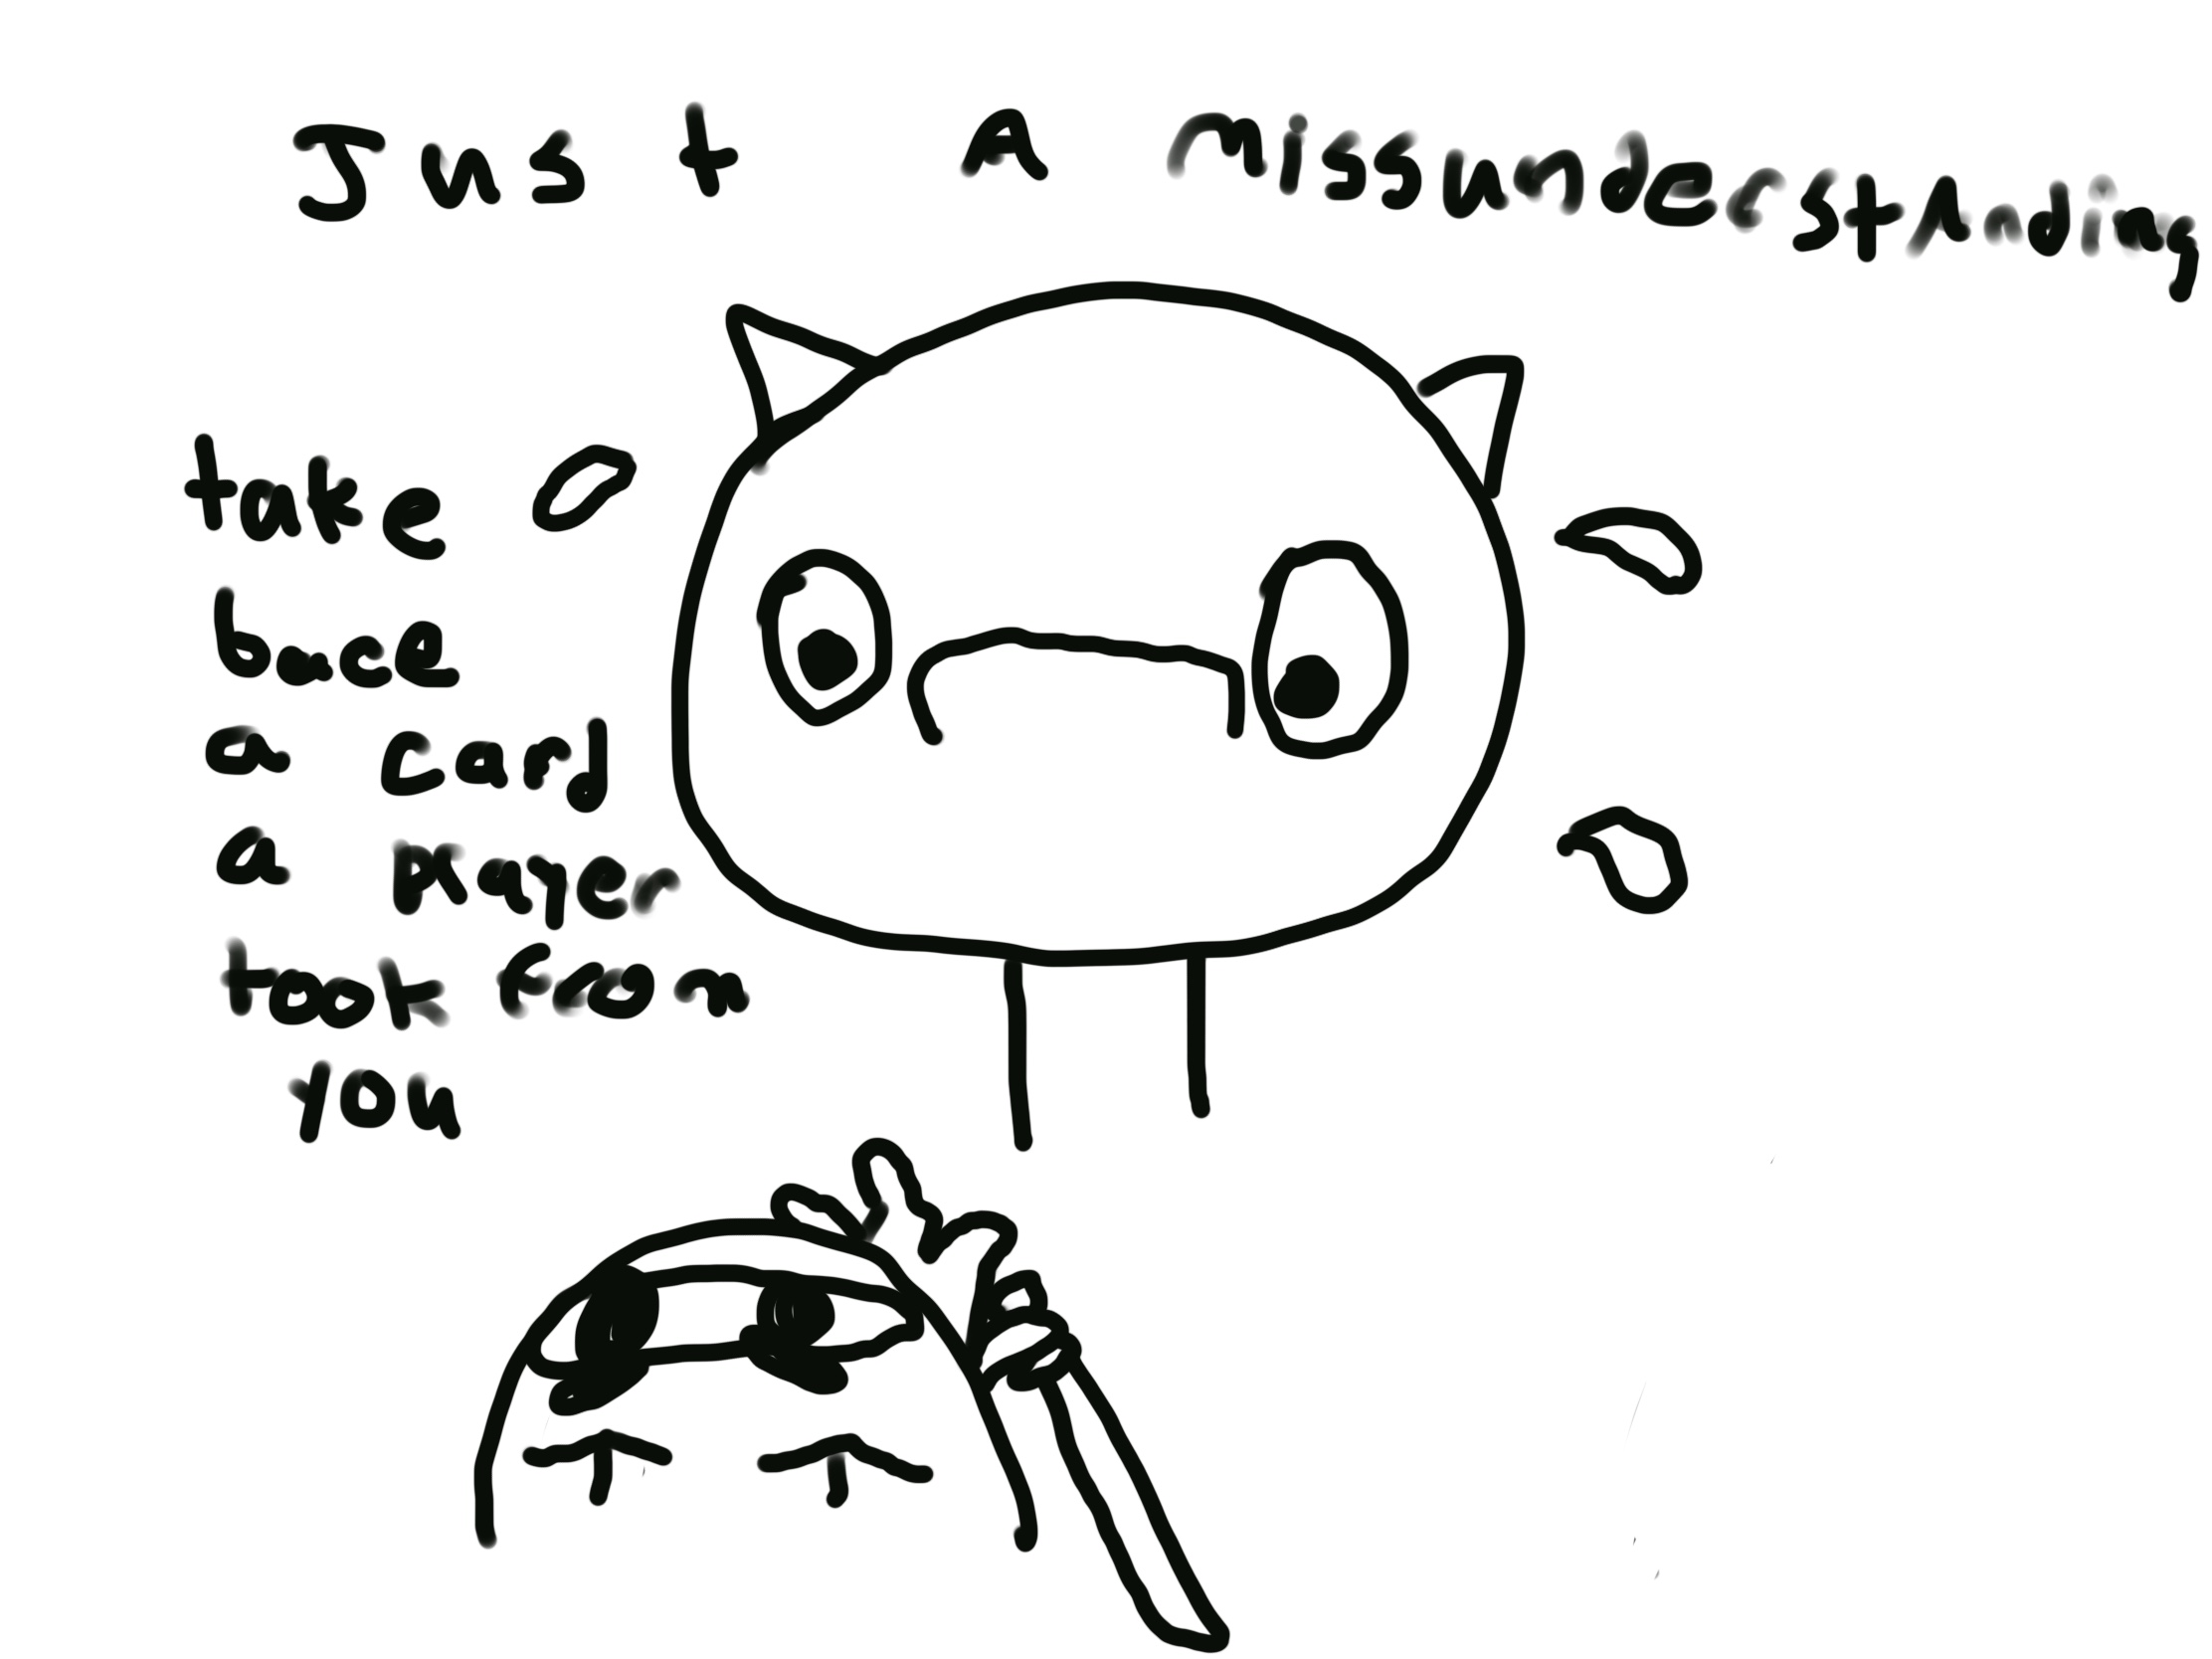 Just A missunderstanding
take
bace
a card
a player
took from
you